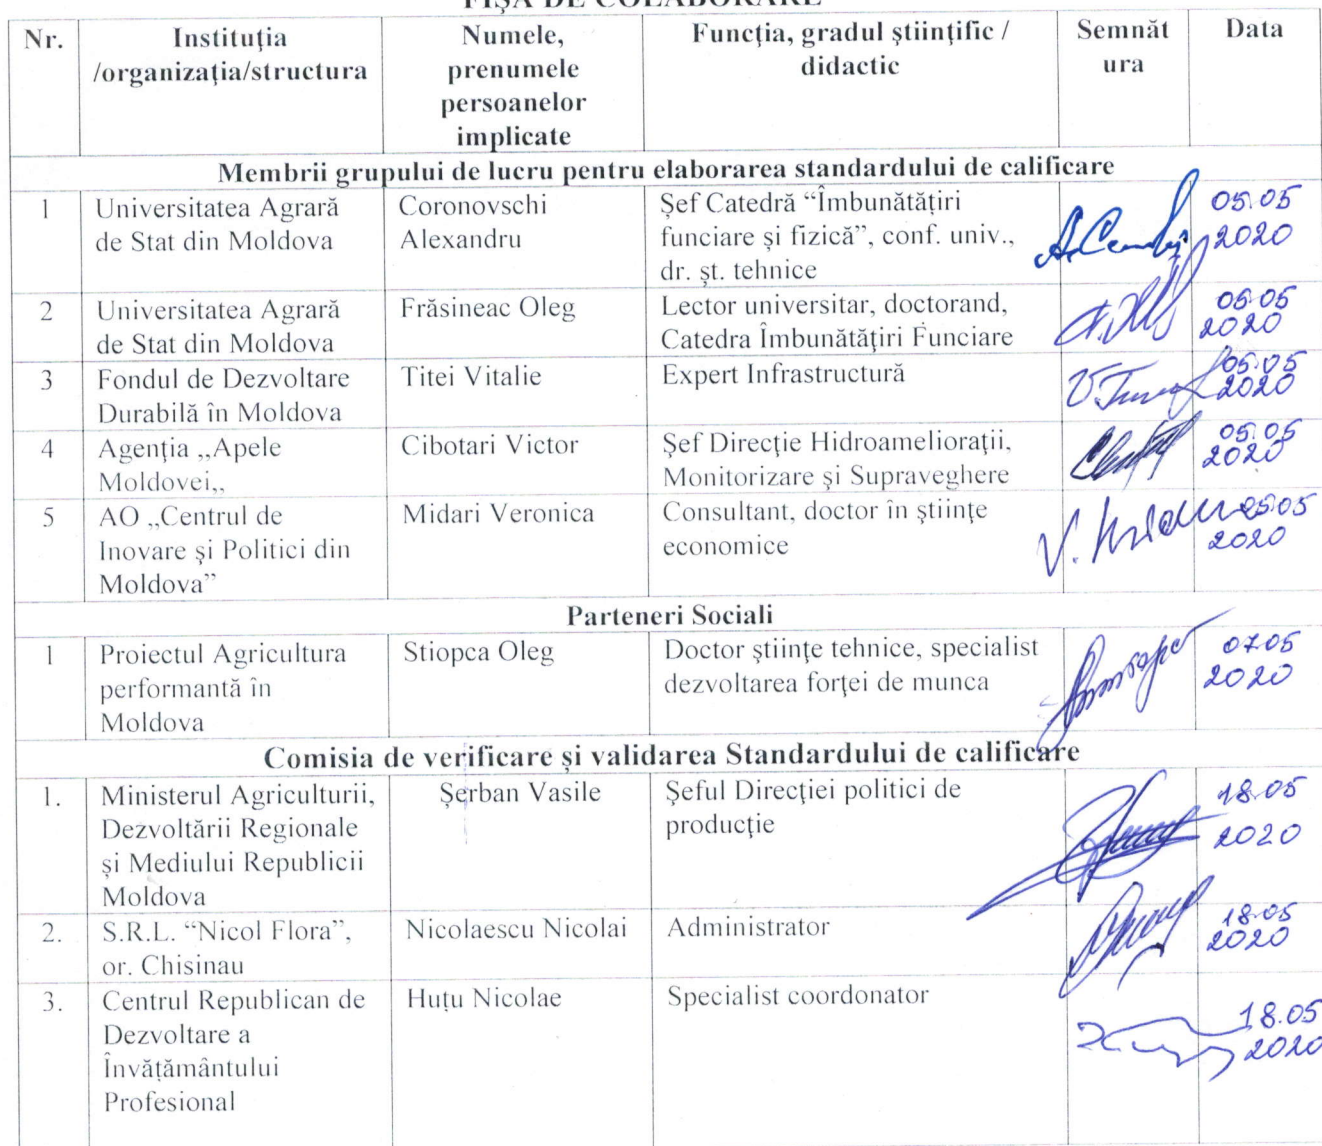 FIȘA DE COLABORARE
Nr. Instituţia /organizaţia/structura Numele, prenumele persoanelor implicate Funcţia, gradul ştiinţific / didactic Semnăt ura Data
Membrii grupului de lucru pentru elaborarea standardului de calificare
1 Universitatea Agrară de Stat din Moldova Coronovschi Alexandru Șef Catedră “Îmbunătățiri funciare și fizică”, conf. univ., dr. șt. tehnice 05.05 2020
2 Universitatea Agrară de Stat din Moldova Frăsineac Oleg Lector universitar, doctorand, Catedra Îmbunătăţiri Funciare 05.05 2020
3 Fondul de Dezvoltare Durabilă în Moldova Titei Vitalie Expert Infrastructură 05.05 2020
4 Agenţia „Apele Moldovei„ Cibotari Victor Şef Direcţie Hidroamelioraţii, Monitorizare şi Supraveghere 05.05 2020
5 AO „Centrul de Inovare şi Politici din Moldova” Midari Veronica Consultant, doctor în ştiinţe economice 05.05 2020
Parteneri Sociali
1 Proiectul Agricultura performantă în Moldova Stiopca Oleg Doctor ştiinţe tehnice, specialist dezvoltarea forţei de munca 07.05 2020
Comisia de verificare și validarea Standardului de calificare
1. Ministerul Agriculturii, Dezvoltării Regionale și Mediului Republicii Moldova Șerban Vasile Şeful Direcţiei politici de producţie 18.05 2020
2. S.R.L. “Nicol Flora”, or. Chisinau Nicolaescu Nicolai Administrator 18.05 2020
3. Centrul Republican de Dezvoltare a Învățământului Profesional Huțu Nicolae Specialist coordonator 18.05 2020